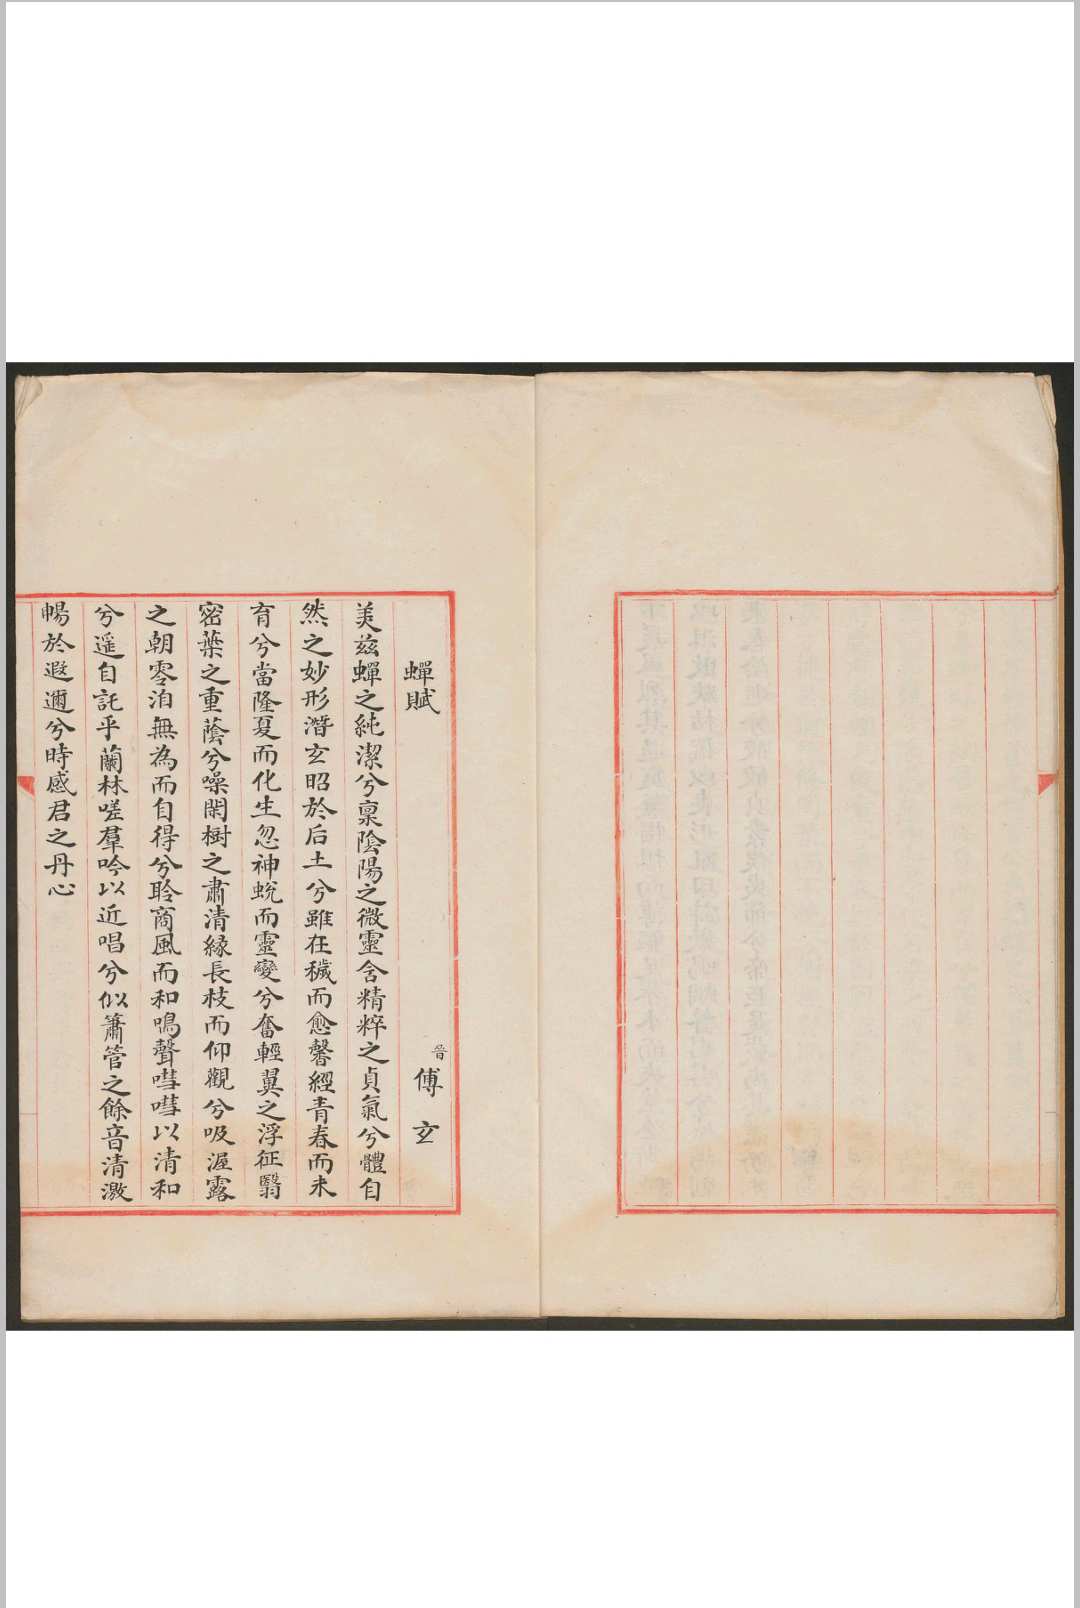 蟬賦
晉 傅玄
美兹蟬之純潔兮稟陰陽之微靈含精粹之貞氣兮體自
然之妙形潛玄昭於后土兮雖在穢而愈馨經青春而未
育兮當隆夏而化生忽神蛻而靈變兮奮輕翼之浮征翳
密葉之重蔭兮噪閑樹之肅清緣長枝而仰觀兮吸渥露
之朝零泊無為而自得兮聆商風而和鳴聲嘒嘒以清和
兮遥自託乎蘭林嗟羣吟以近唱兮似簫管之餘音清激
暢於遐邇兮時感君之丹心